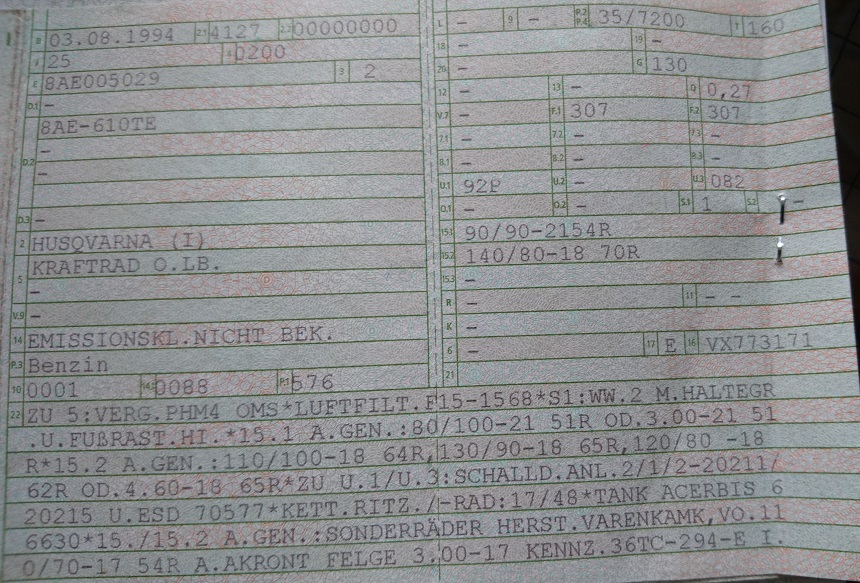 B 03.08.1994 2.1 4127 2.2 00000000 L – 9 – P.2 P.4 35/7200 T 160
J 25 4 0200 18 – 19 –
E 8AE005029 3 2 20 – G 130
D.1 – 12 – 13 – Q 0,27
8AE-610TE V.7 – F.1 307 F.2 307
– 7.1 – 7.2 – 7.3 –
D.2 – 8.1 – 8.2 – 8.3 –
U.1 92P U.2 – U.3 082
D.3 – O.1 – O.2 – S.1 1 S.2 –
2 HUSQVARNA (I) 15.1 90/90-2154R
KRAFTRAD O.LB. 15.2 140/80-18 70R
5 – 15.3 –
V.9 – R – 11 – –
14 EMISSIONSKL.NICHT BEK. K –
P.3 Benzin 6 – 17 E 16 VX773171
10 0001 14.1 0088 P.1 576 21
22 ZU 5:VERG.PHM4 OMS*LUFTFILT.F15-1568*S1:WW.2 M.HALTEGR
.U.FUßRAST.HI.*15.1 A.GEN.:80/100-21 51R OD.3.00-21 51
R*15.2 A.GEN.:110/100-18 64R,130/90-18 65R,120/80 -18
62R OD.4.60-18 65R*ZU U.1/U.3:SCHALLD.ANL.2/1/2-20211/
20215 U.ESD 70577*KETT.RITZ./-RAD:17/48*TANK ACERBIS 6
6630*15./15.2 A.GEN.:SONDERRÄDER HERST.VARENKAMK,VO.11
0/70-17 54R A.AKRONT FELGE 3.00-17 KENNZ.36TC-294-E I.